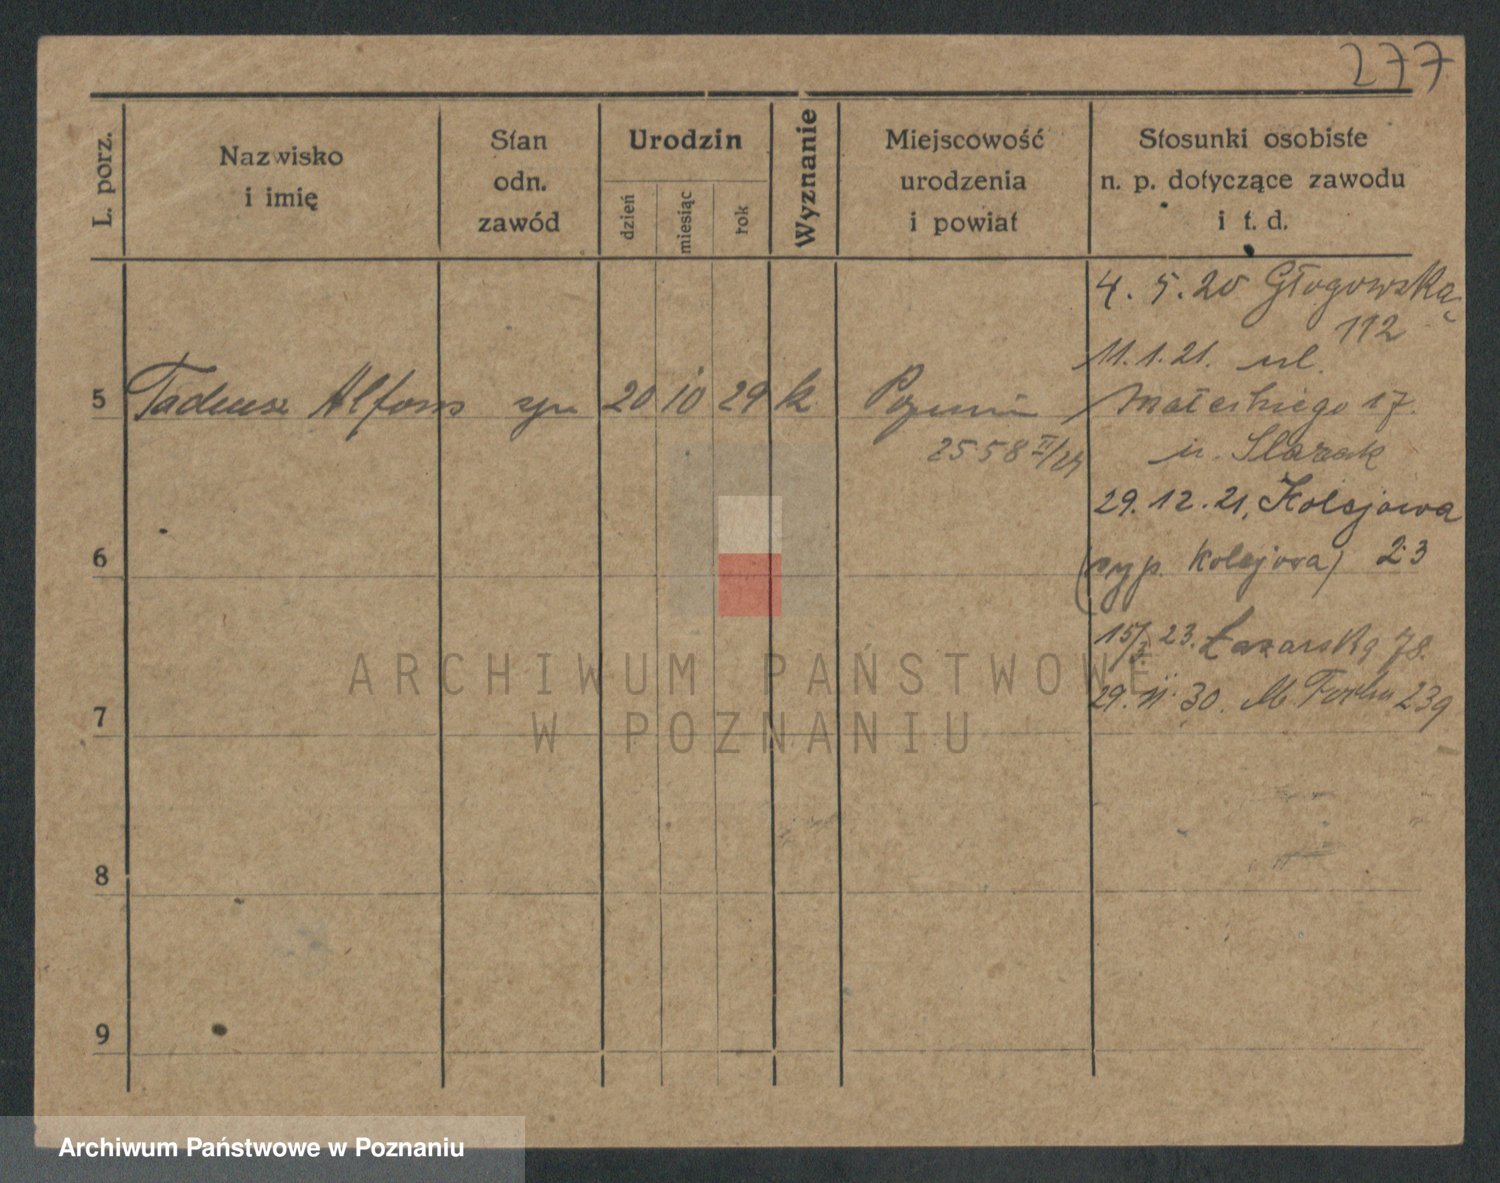 277
L. porz.
Nazwisko
i imię
Stan
odn.
zawód
Urodzin
dzień
miesiąc
rok
Wyznanie
Miejscowość
urodzenia
i powiat
Stosunki osobiste
n. p. dotyczące zawodu
i t. d.
4. 5. 20 Głogowska
112
11.1.21. ul.
Małeckiego 17.
5 Tadeusz Alfons syn 20 10 29 k
2558 II/29
u. Slazak
29.12.21, Kolejowa
6
Kolejowa) 23
23. Łazarska 78.
7
29. 30. M. 239
ARCHIWUM PAŃSTWOWE
W POZNANIU
8
9
Archiwum Państwowe w Poznaniu